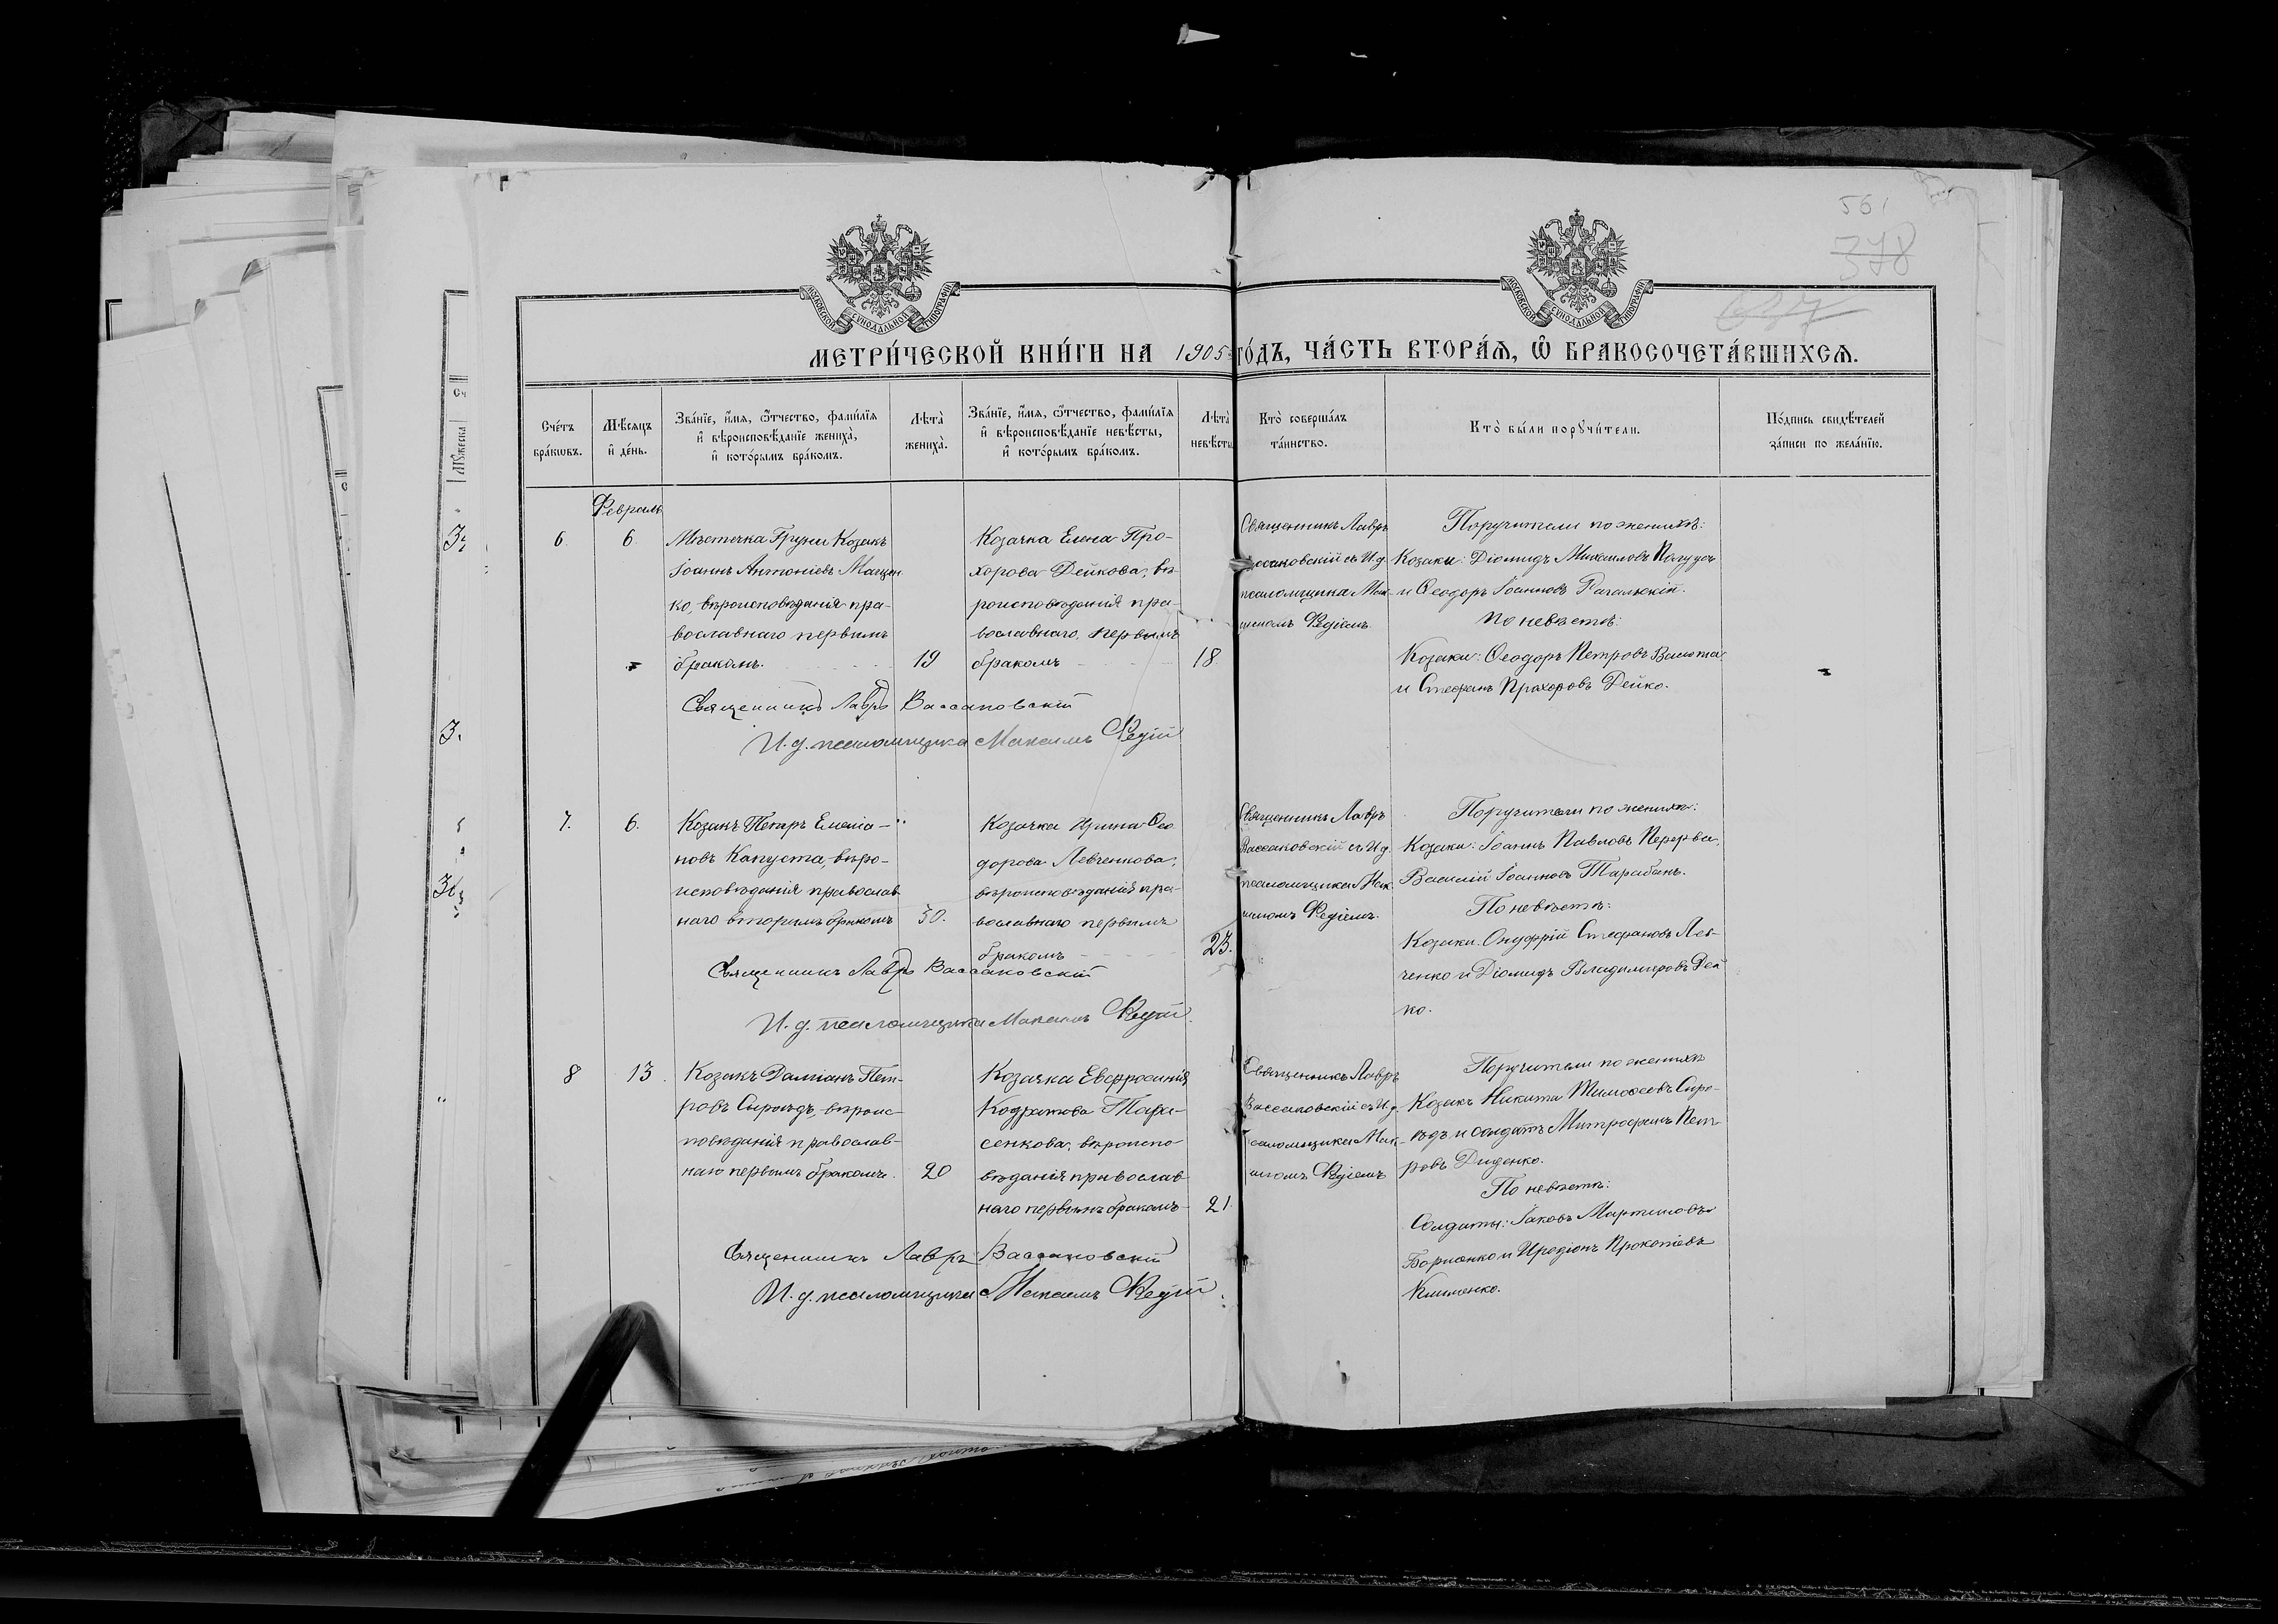 561
378
637
МОСКОВСКОЙ СѴНОДАЛЬНОЙ ТИПОГРАФІИ
МОСКОВСКОЙ СѴНОДАЛЬНОЙ ТИПОГРАФІИ
МЕТРИ́ЧЕСКОЙ КНИ́ГИ НА 1905 ГО́ДЪ, ЧА́СТЬ ВТОРА́Ѧ, Ѽ БРАКОСОЧЕТА́ВШИХСѦ.
Сче́тъ бра́кѡвъ.
Мѣ́сѧцъ и҆ де́нь.
Зва́нїе, и҆́мѧ, ѻ҆́тчество, фами́лїѧ и҆ вѣроисповѣ́данїе жениха̀, и҆ кото́рымъ бра́комъ.
Лѣта̀ жениха̀.
Зва́нїе, и҆́мѧ, ѻ҆́тчество, фами́лїѧ и҆ вѣроисповѣ́данїе невѣ́сты, и҆ кото́рымъ бра́комъ.
Лѣта̀ невѣ́сты
Кто̀ соверша́лъ та́инство.
Кто̀ бы́ли порꙋчи́тели.
По́дпись свидѣ́телей за́писи по жела́нїю.
Февраль
6.
6.
Мѣстечка Груни Козакъ
Іоаннъ Антоніевъ Мацен
ко, вѣроисповѣданія пра-
вославнаго первымъ
бракомъ.
19
Козачка Елена Про-
хорова Дейкова, вѣ-
роисповѣданія пра-
вославнаго, первымъ
бракомъ
18.
Священникъ Лавръ
Вассаковскій съ И.д.
псаломщика Мак-
симомъ Редіемъ.
Поручители по женихѣ:
Козаки: Діомидъ Михаиловъ Полуусъ
и Ѳеодоръ Іоанновъ Рагальскій.
По невѣстѣ:
Козаки: Ѳеодоръ Петровъ Валюта
и Стефанъ Прохоровъ Дейко.
Священникъ Лавръ Вассаковскій
И.д. псаломщика Максимъ Редій
7.
6.
Козакъ Петръ Емеліа-
новъ Капуста, вѣро-
исповѣданія православ
наго вторымъ бракомъ
30.
Козачка Ирина Ѳео
дорова Левченкова,
вѣроисповѣданія пра-
вославнаго первымъ
бракомъ
23.
Священникъ Лавръ
Вассаковскій съ И.д.
псаломщика Мак-
симомъ Редіемъ.
Поручители по женихѣ:
Козаки: Іоаннъ Павловъ Перерва,
Василій Іоанновъ Тарабанъ.
По невѣстѣ:
Козаки: Онуфрій Стефановъ Лев-
ченко и Діомидъ Владимировъ Дей
ко.
Священникъ Лавръ Вассаковскій
И.д. псаломщика Максимъ Редій.
8
13.
Козакъ Даміанъ Пет-
ровъ Сыроѣдъ, вѣроис-
повѣданія православ-
наго первымъ бракомъ.
20
Козачка Евфросинія
Кодратова Тара-
сенкова, вѣроиспо
вѣданія православ
наго первымъ бракомъ
21.
Священникъ Лавръ
Вассаковскій съ И.д.
псаломщика Мак-
симомъ Редіемъ
Поручители по женихѣ
Козакъ Никита Тимоѳеевъ Сыро-
ѣдъ и солдатъ Митрофанъ Пет-
ровъ Диденко.
По невѣстѣ:
Солдаты: Іаковъ Мартиновъ
Борисенко и Иродіонъ Прокопіевъ
Клименко.
Священникъ Лавръ Вассаковскій
И.д. псаломщика Максимъ Редій.